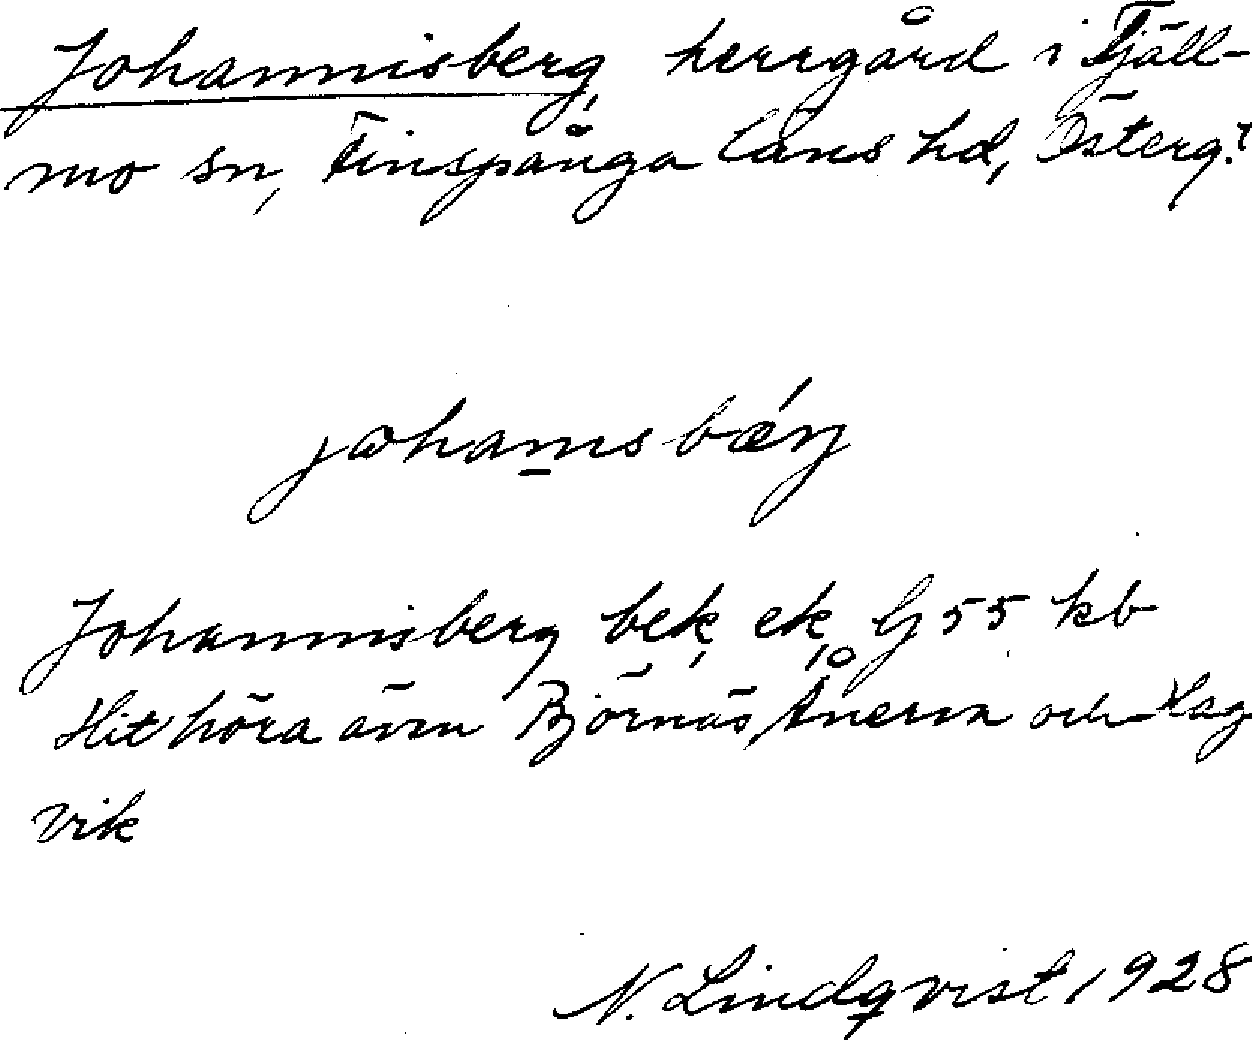 Johannisberg, herrgård i Tjäll-
mo sn, Finspånga läns hd, Österg.
johan̲sbǽrj
Johannisberg bek, ek, G 55 kb
Hit höra även Björnäs, Ånerna och Hag
vik
N. Lindqvist 1928